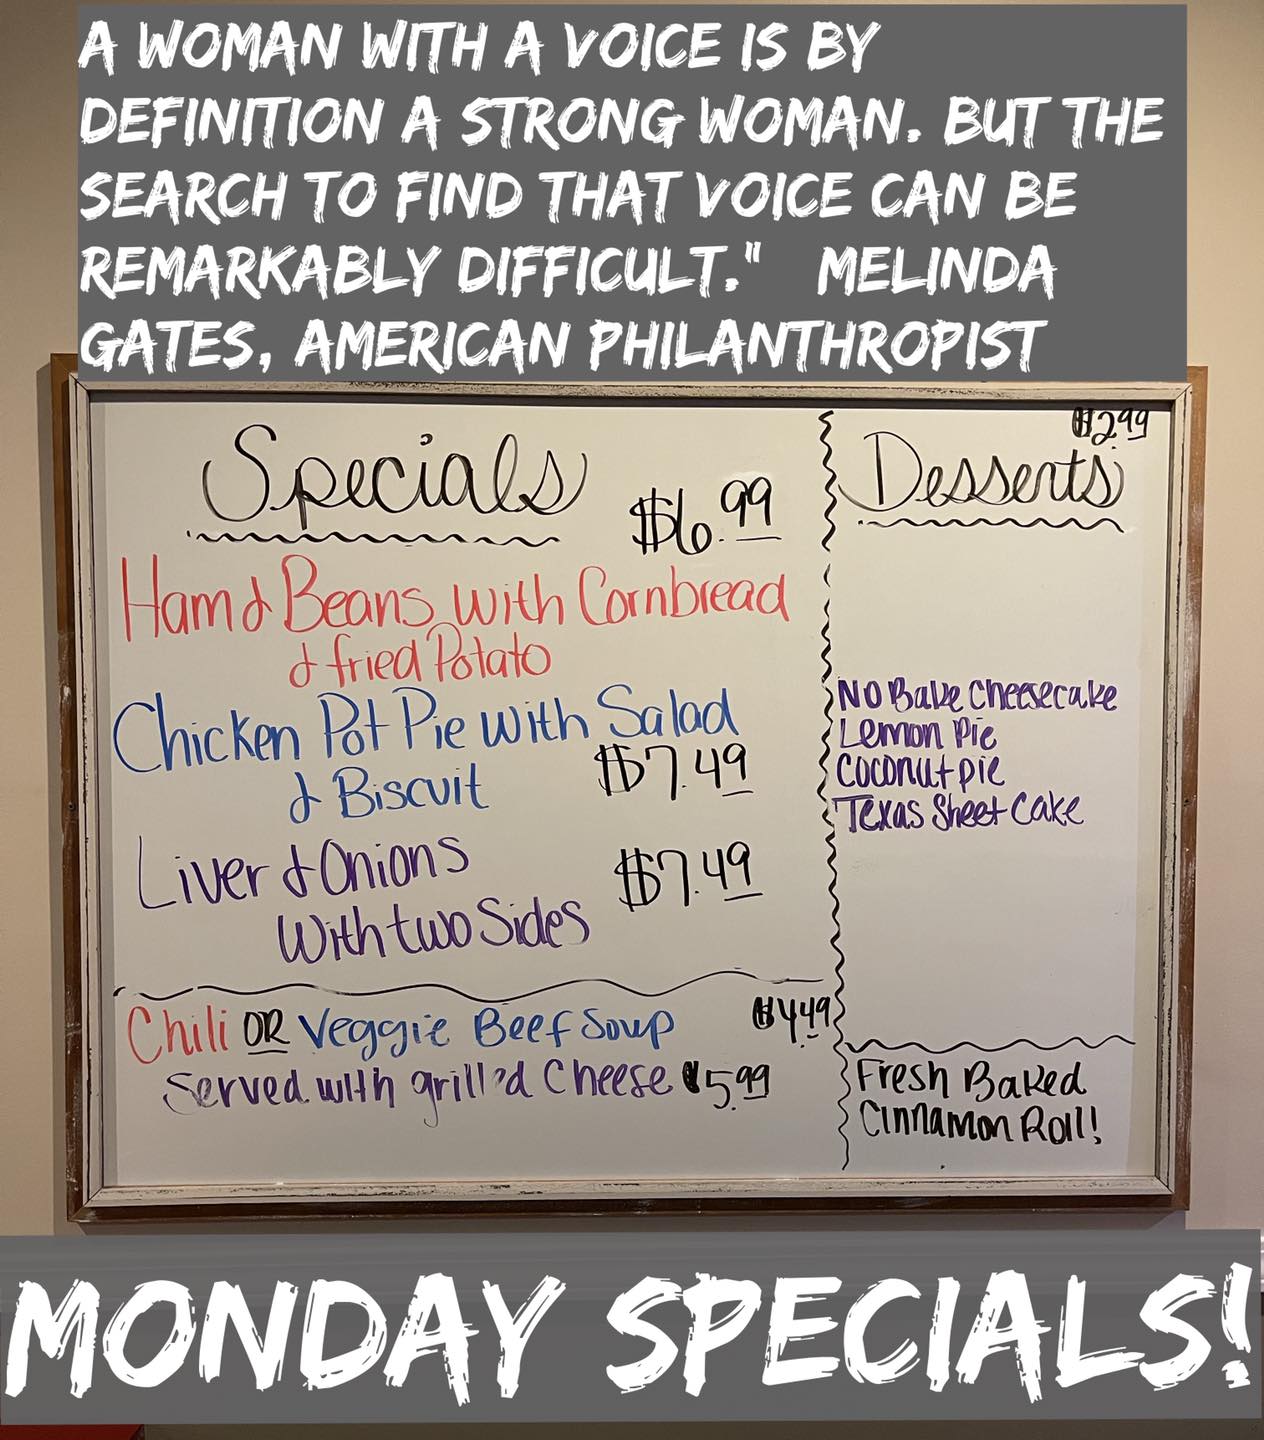 A WOMAN WITH A VOICE IS BY
DEFINITION A STRONG WOMAN. BUT THE
SEARCH TO FIND THAT VOICE CAN BE
REMARKABLY DIFFICULT." MELINDA
GATES, AMERICAN PHILANTHROPIST
Specials
$6.99
Ham & Beans with Cornbread
& fried Potato
Chicken Pot Pie with Salad
& Biscuit $7.49
Liver & Onions $7.49
With two Sides
Chili OR Veggie Beef Soup $4.49
Served with grilled Cheese $5.99
$2.99
Desserts
No Bake Cheesecake
Lemon Pie
Coconut pie
Texas Sheet Cake
Fresh Baked
Cinnamon Roll!
MONDAY SPECIALS!